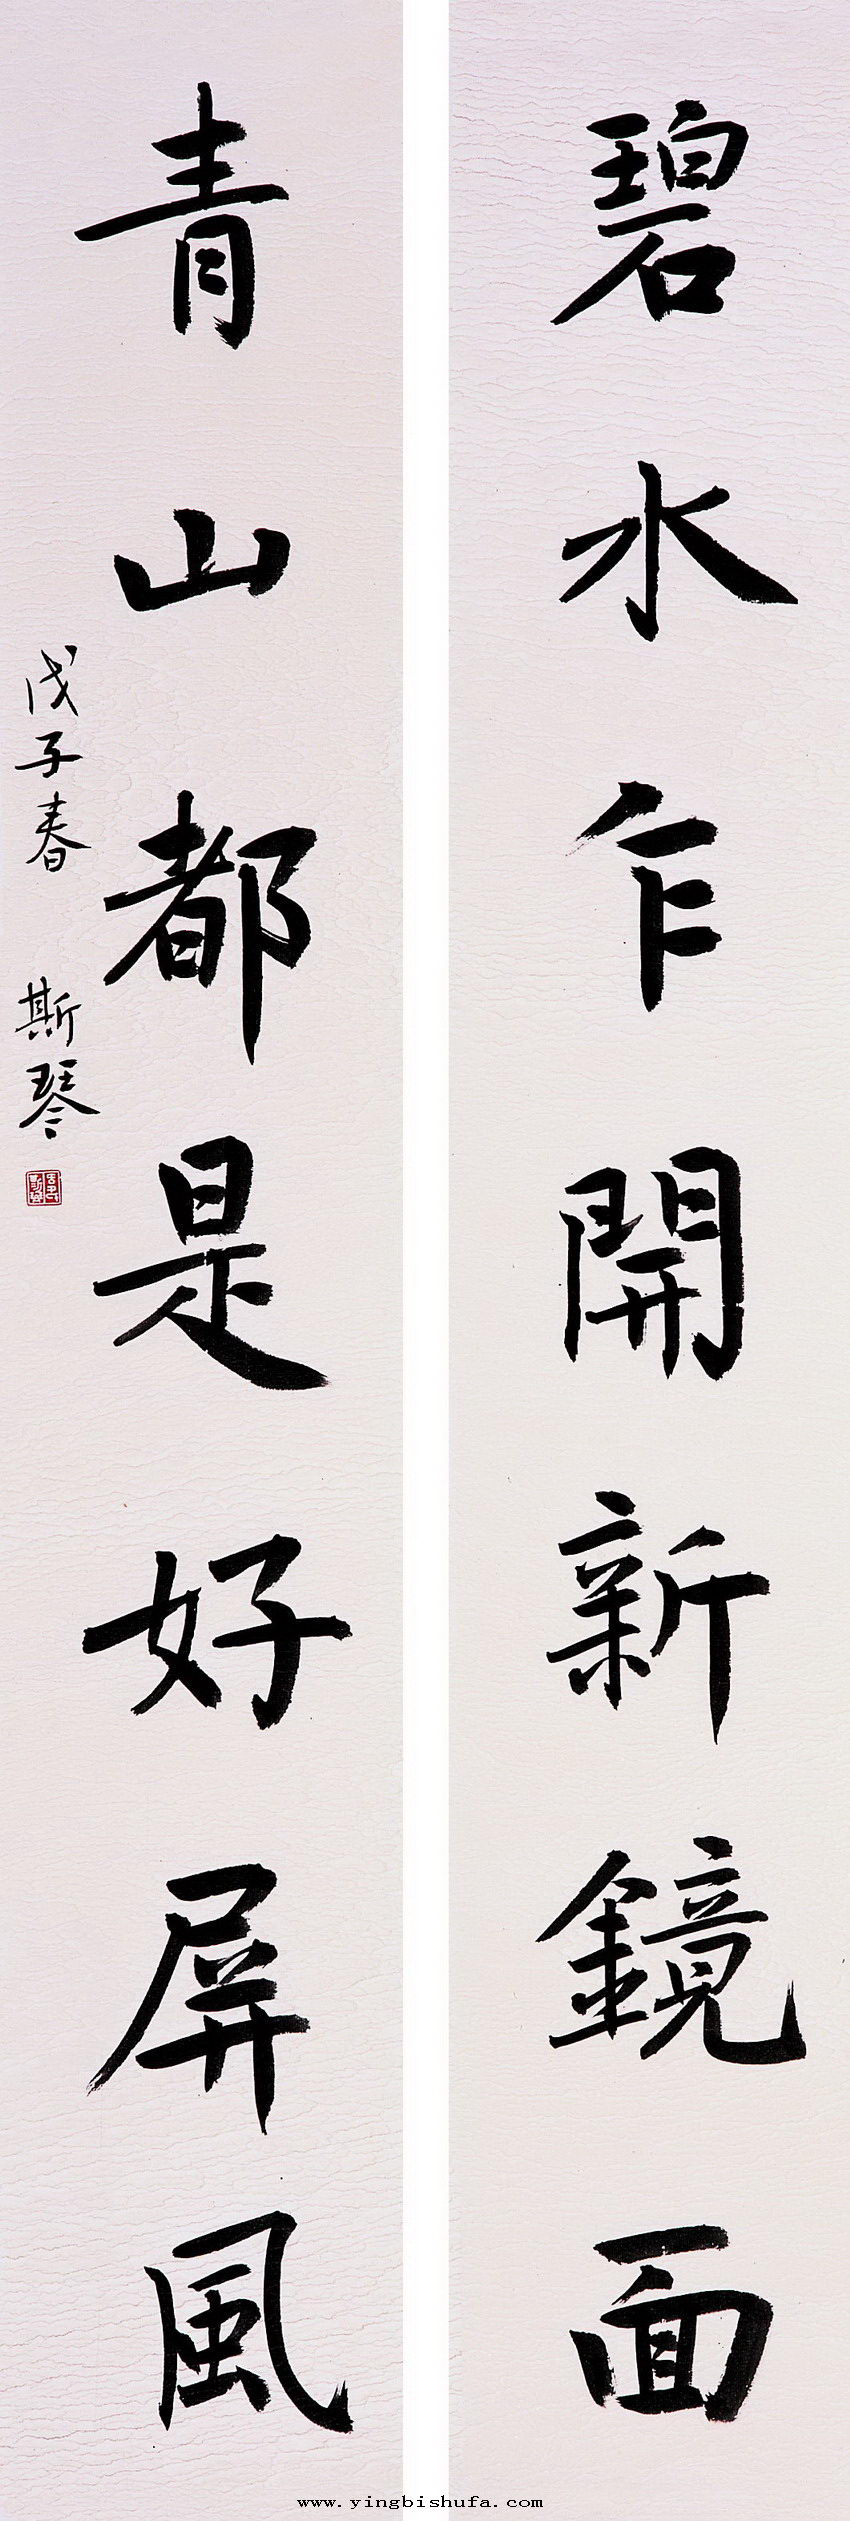 碧水乍開新鏡面
青山都是好屏風
戊子春 斯琴
www.yingbishufa.com